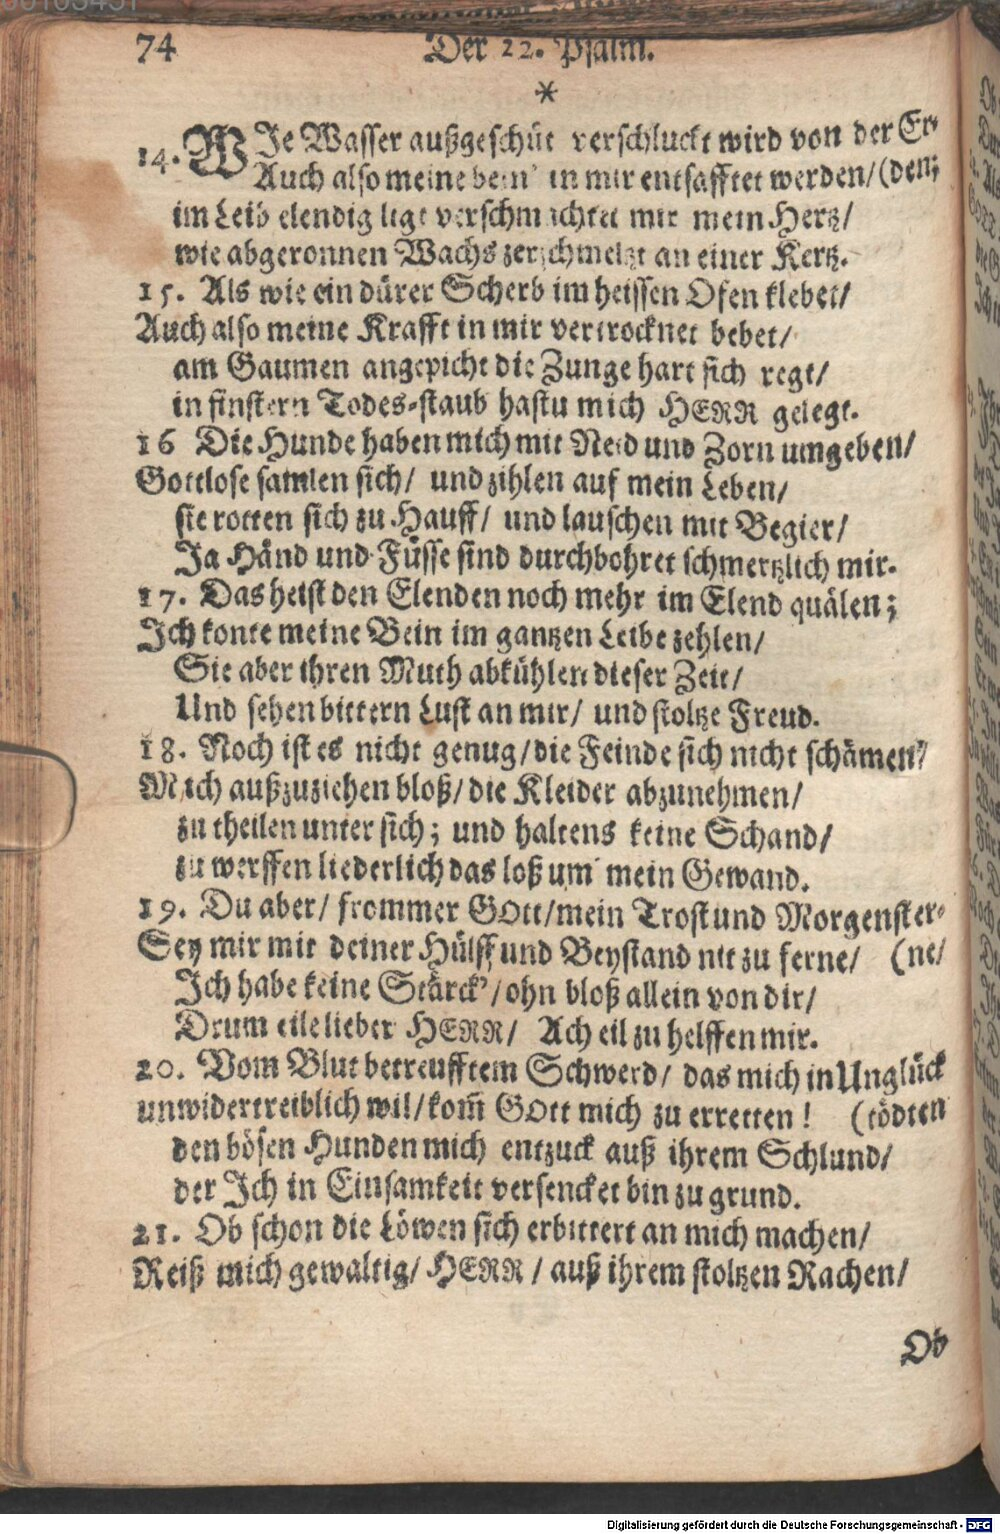 74 Der 22. Psalm.
*
14. WIe Wasser außgeschüt verschluckt wird von der Er-
Auch also meine bein' in mir entsafftet werden/ (den;
im Leib elendig ligt verschmachtet mir mein Hertz/
wie abgeronnen Wachs zerschmeltzt an einer Kertz.
15. Als wie ein dürer Scherb im heissen Ofen klebet/
Auch also meine Krafft in mir vertrocknet bebet/
am Gaumen angepicht die Zunge hart sich regt/
in finstern Todes-staub hastu mich HERR gelegt.
16 Die Hunde haben mich mit Neid und Zorn umgeben/
Gottlose samlen sich/ und zihlen auf mein Leben/
sie rotten sich zu Hauff/ und lauschen mit Begier/
Ja Händ und Füsse sind durchbohret schmertzlich mir.
17. Das heist den Elenden noch mehr im Elend quälen;
Ich konte meine Bein im gantzen Leibe zehlen/
Sie aber ihren Muth abkühlen dieser Zeit/
Und sehen bittern Lust an mir/ und stoltze Freud.
18. Noch ist es nicht genug/die Feinde sich nicht schämen/
Mich außzuziehen bloß/die Kleider abzunehmen/
zu theilen unter sich; und haltens keine Schand/
zu werffen liederlich das loß um' mein Gewand.
19. Du aber/ frommer GOtt/mein Trost und Morgenster-
Sey mir mit deiner Hülff und Beystand nit zu ferne/ (ne/
Ich habe keine Stärck'/ohn bloß allein von dir/
Drum eile lieber HERR/ Ach eil zu helffen mir.
20. Vom Blut betreufftem Schwerd/ das mich in Unglück
unwidertreiblich wil/kom̃ GOtt mich zu erretten! (tödten
den bösen Hunden mich entzuck auß ihrem Schlund/
der Ich in Einsamkeit versencket bin zu grund.
21. Ob schon die Löwen sich erbittert an mich machen/
Reiß mich gewaltig/ HERR / auß ihrem stoltzen Rachen/
Ob
Digitalisierung gefördert durch die Deutsche Forschungsgemeinschaft - DFG